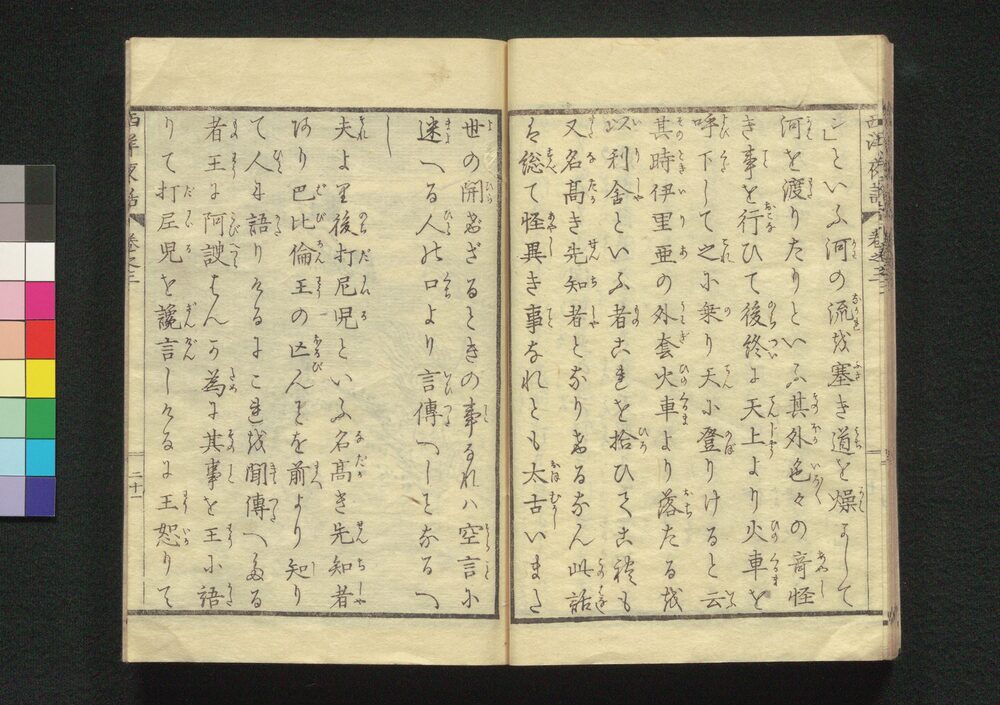 ン」といふ河の流を塞き道を燥かして
河を渡りたりといふ其外色々の竒怪
き事を行ひて後終に天上より火車を
呼下して之に乗り天に登りけると云
其時伊里亜の外套火車より落たるを
以利舎といふ者これを拾ひてこれも
又名髙き先知者となりけるなん此話
は総て怪異き事なれとも太古いまた
世の開けざるときの事なれハ空言に
迷へる人の口より言傳へしとなるへ
し
夫より後打尼児といふ名髙き先知者
あり巴比倫王の亡んことを前より知り
て人に語りけるにこれを聞傳へたる
者王に阿諛はんか為に其事を王に語
りて打尼児を讒言しけるに王怒りて
西洋夜話
卷之三
二十一